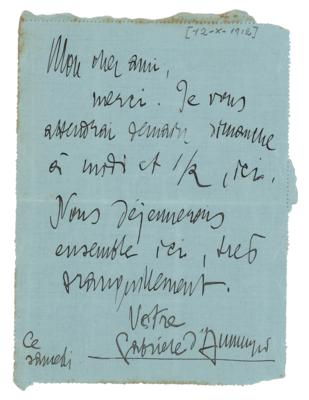 [12-X-1912]
Mon cher ami,
merci. Je vous
attendrai demain dimanche
à midi et 1/2, ici.
Nous déjeunerons
ensemble ici, très
tranquillement.
Votre
Gabriele d'Annunzio
Ce
samedi